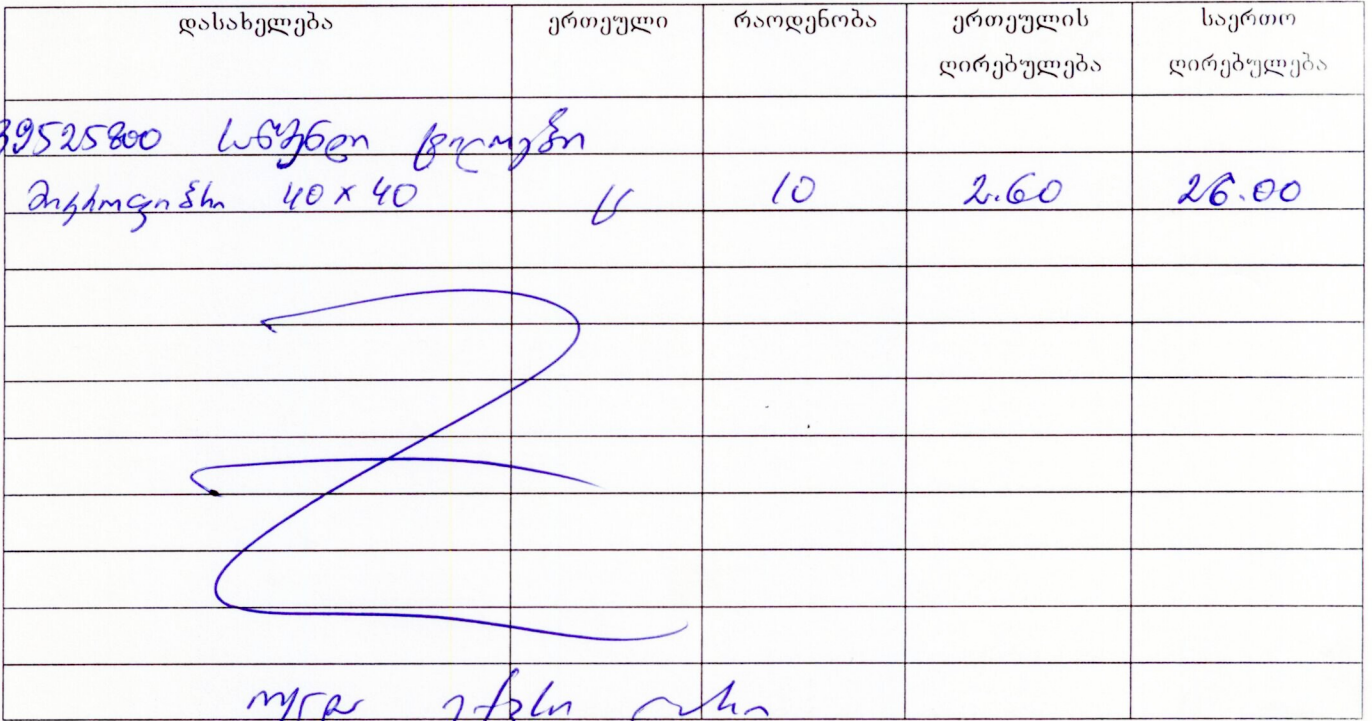 დასახელება ერთეული რაოდენობა ერთეულის ღირებულება საერთო ღირებულება
39525800 საწმენდი ტილოები
მიკროფიბრი 40 x 40 ც 10 2.60 26.00
ოცდა ექვსი ლარი